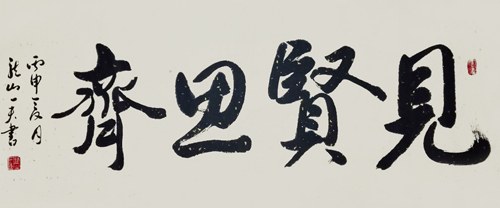 見賢思齊
丙申夏月
山一夫書